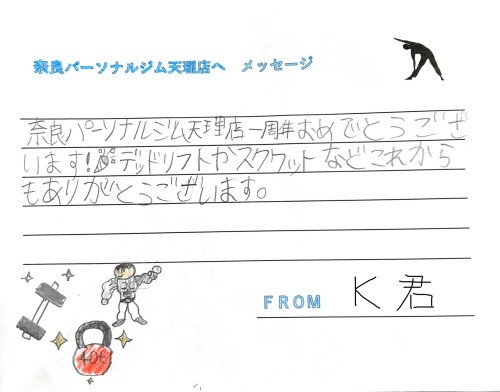 奈良パーソナルジム天理店へ メッセージ
奈良パーソナルジム天理店一周年おめでとうござ
います!🎉デッドリフトやスクワットなどこれから
もありがとうございます。
FROM K君
40t